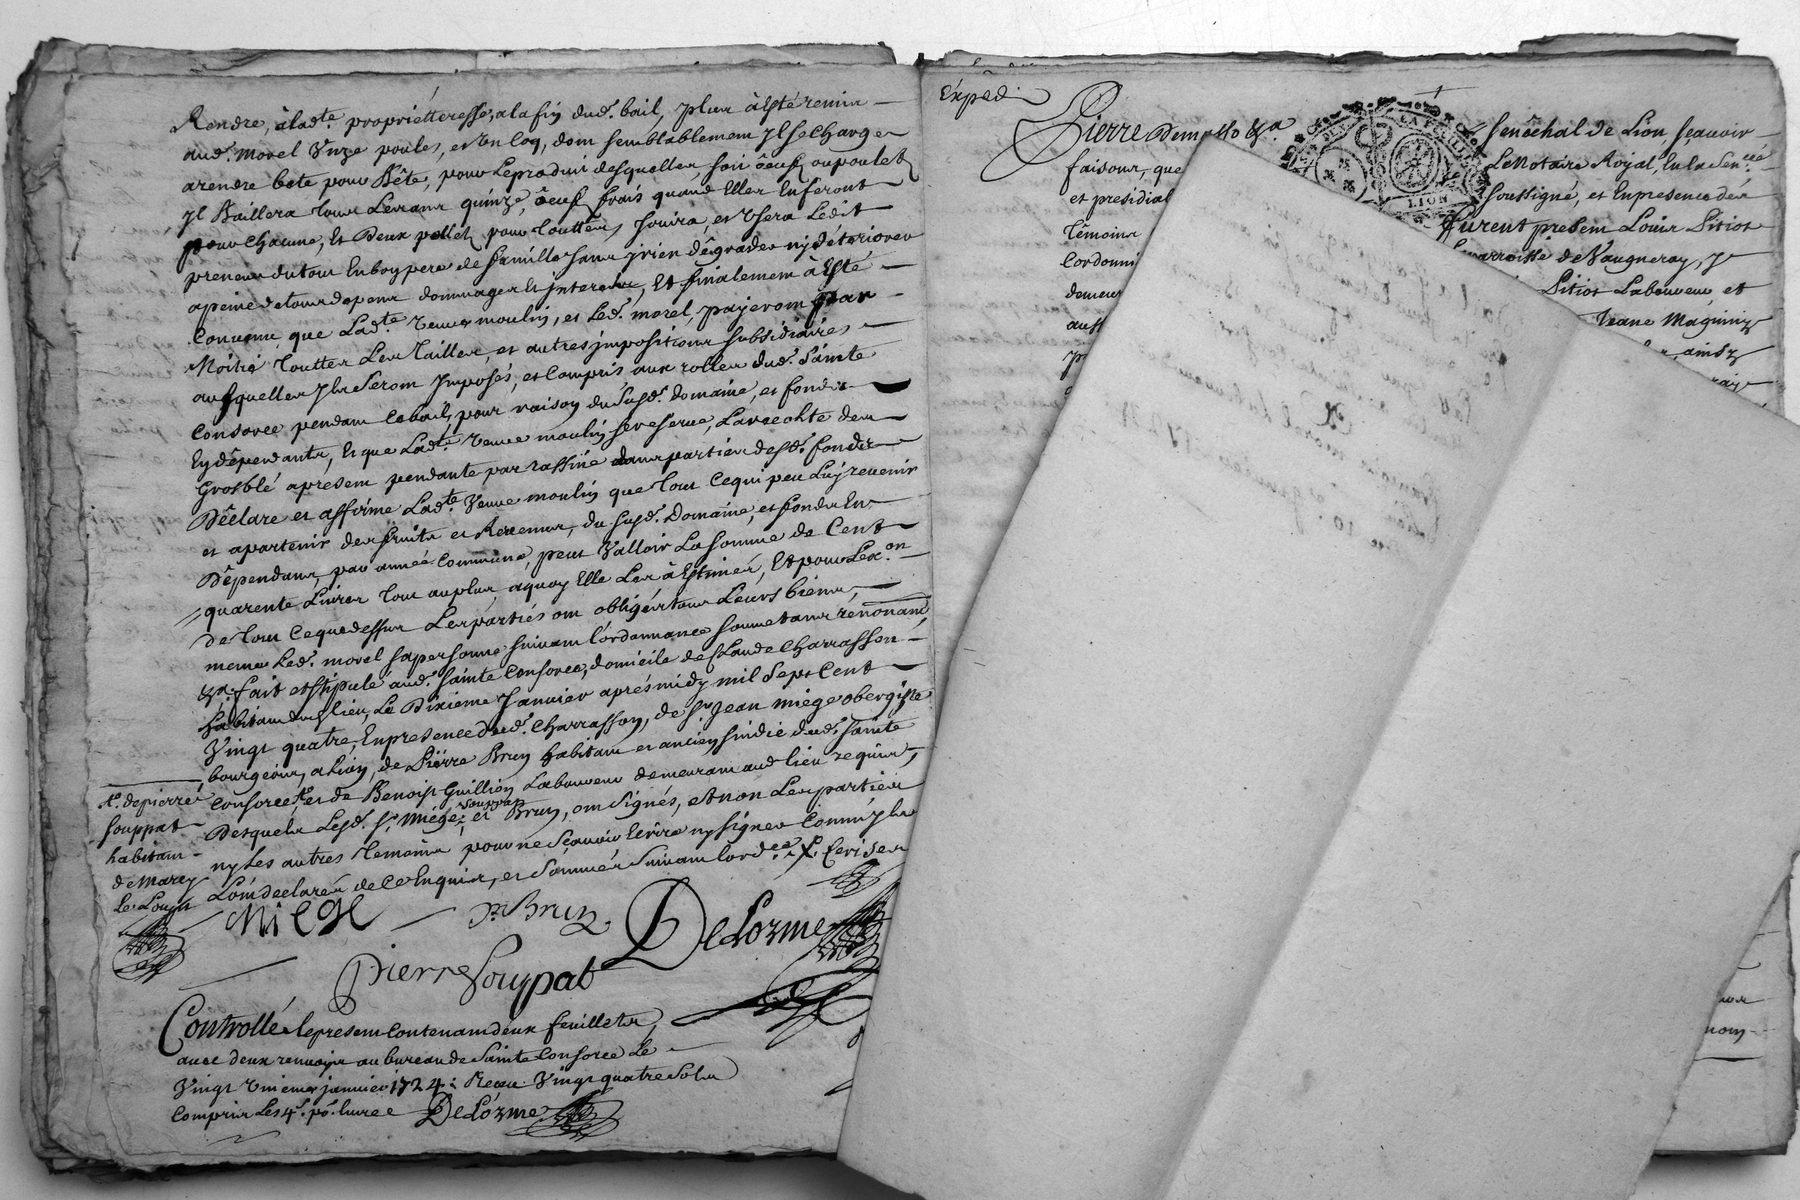 Rendre, a lad.te proprietteresse, a la fin dud. bail, plus à esté remis
aud. morel Unze poules, et Un Coq, dont semblablement yl se Charge
a rendre bete pour Bête, pour Le produit desquelles, soit oeufs ou poulets
yl Baillera tous Les ans quinze, oeufs frais quand Elles En feront
pour chacune, Et Deux pollets pour touttes, Jouira, et Usera Ledit
preneur du tout En bon pere de famille sans y rien dégrader ny détériorer
a peine de tous depens dommages et interests, Et finalement à Esté
Convenu, que Lad.te Veuve moulin, et Led. morel, payeront par
Moitié touttes Les tailles, et autres jmpositions subsidiaires
ausquelles yls Seront Jmposés, et Compris aux rolles dud. Sainte
Consorce pendant Ce bail, pour raison du Susd. domaine, et fonds
En dépendants, Et que Lad.te Veuve moulin se reserve, La recolte des
Gros blé a present pendante par rassine dans partie desd. fonds
Déclare et affirme Lad.te Veuve moulin que tout Ce qui peu Luy revenir
et apartenir des fruits et Revenus, du Susd. Domaine, et fonds En
Dépendans, par année Commune, peut Valloir La somme de Cent
quarente Livres tout au plus, a quoy Elle Les à Estimés, Et pour L'ex.on
de tout Ce que dessus Les parties ont obligés tous Leurs biens,
mesmes Led. morel sa personne suivant l'ordonnance soumetant renonant
&a. fait et stipulé aud. Sainte Consorce, domicile de Claude Charrasson
habitant dud. lieu, Le Dixieme Janvier aprés midy mil Sept Cent
Vingt quatre, En presence dud. Charrasson, de Sr. Jean miege obergiste
bourgeois, a Lion, de Pierre Brun habitant et ancien sindic dud. Sainte
Consorce, et de Benoist Guillion Laboureur demeurant aud lieu requis,
x. de pierre
souppat
habitant
de Marcy
Le Loup
Desquels Lesd. Sr. Miége, souppat et Brun, ont Signés, et non Les parties
ny Les autres temoins pour ne Scavoir Ecrire ny signer Comm'yls
L'ont declarés de Ce Enquis, et Sommés Suivant l'ord.ce
MIEGE
Pr Brun
DeLorme
Pierre Soupat
Controllé le present Contenant deux feuillets,
avec deux renvoys au bureau de Sainte Consorce Le
Vingt Unieme janvier 1724: Receu Vingt quatre Sols
Compris Les 4s. po. livre
DeLorme
Expedié
Pierre
&a
Senéchal de Lion, Sçavoir
faisons, que
Le Notaire Royal, En la Sen.cée
et presidial
Soussigné, et En presence des
Témoins
furent presents Louis Sitiot
Cordonni
parroisse de Vaugneray, Je
demeur
Sitiot Laboureur, et
auss
Jeane
ainsy
LION